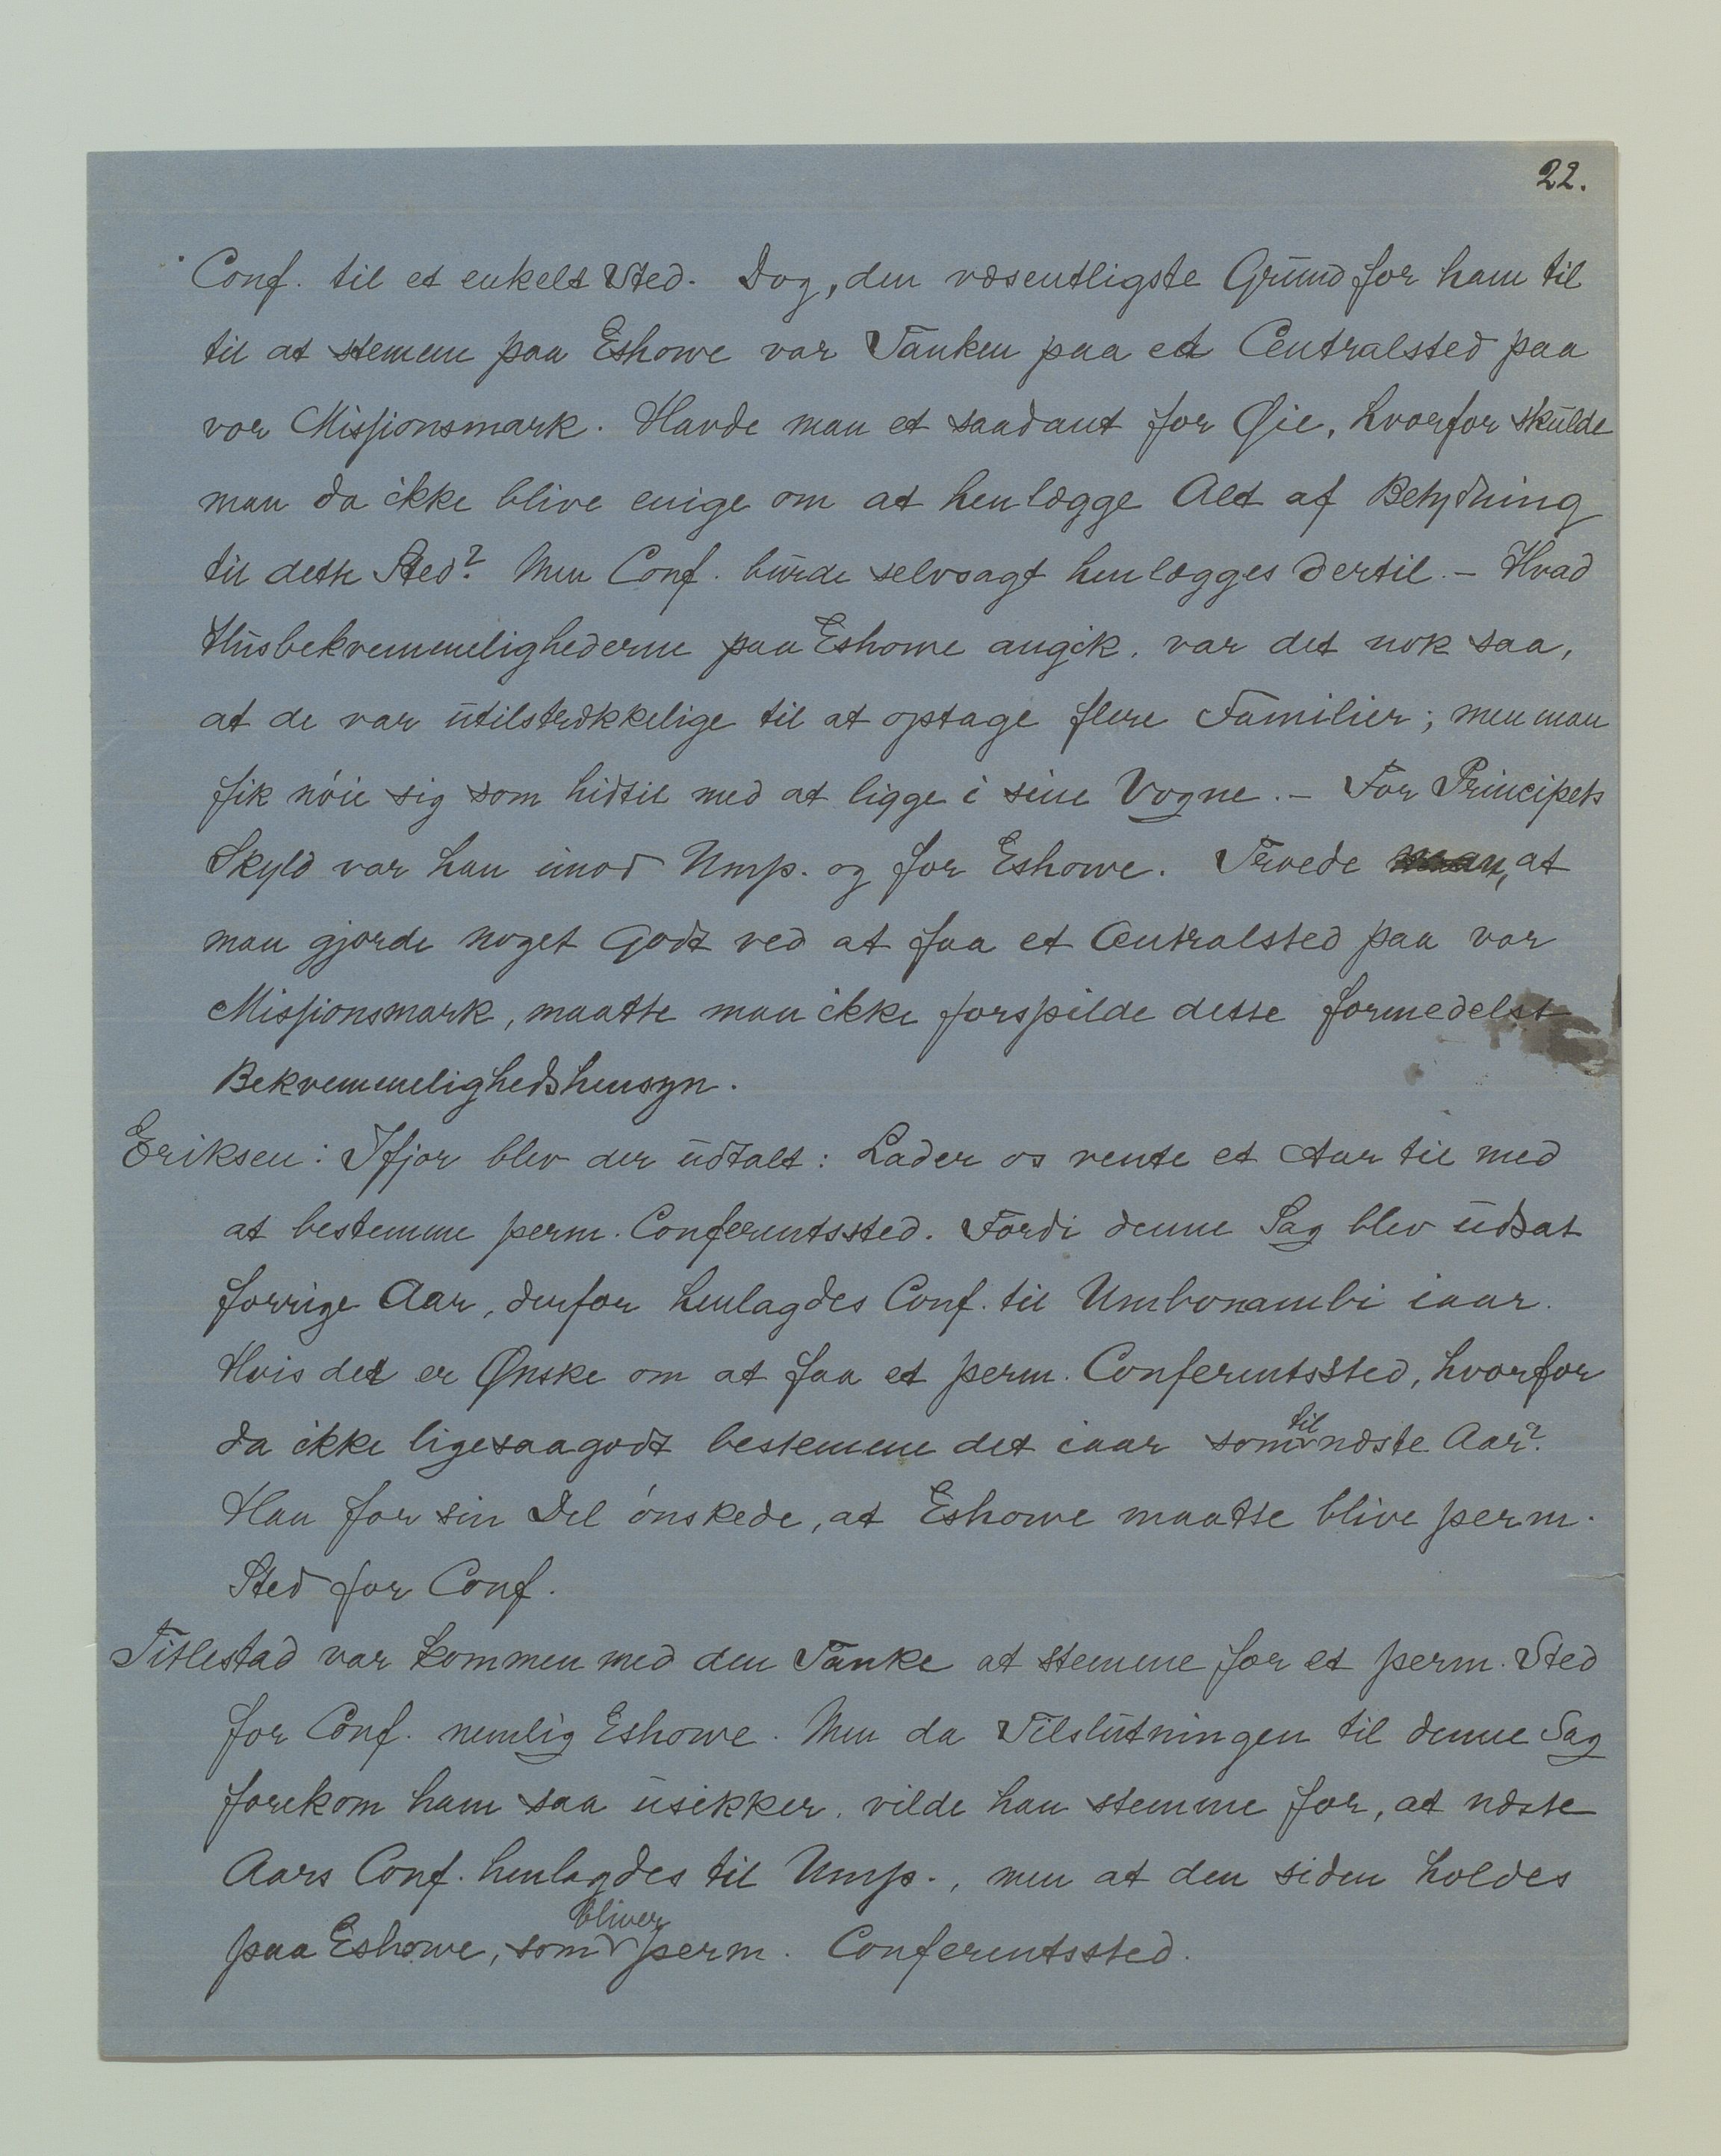 22.
Conf. til et enkelt Sted. Dog, den væsentligste Grund for ham til
til at stemme paa Eshowe var Tanken paa et Centralsted paa
vor Missionsmark. Havde man et saadant for Øie, hvorfor skulde
man da ikke blive enige om at henlægge Alt af Betydning
til dette Sted? Men Conf. burde selvsagt henlægges dertil. – Hvad
Husbekvemmelighederne paa Eshowe angik, var det nok saa,
at de var utilstrækkelige til at optage flere Familier; men man
fik nöie sig som hidtil med at ligge i sine Vogne. – For Principets
Skyld var han imod Ump. og for Eshowe. Troede man, at
man gjorde noget Godt ved at faa et Centralsted paa vor
Missionsmark, maatte man ikke forspilde dette formedelst
Bekvemmelighedshensyn.
Eriksen: Ifjor blev der udtalt: Lader os vente et Aar til med
at bestemme perm. Conferentssted. Fordi denne Sag blev udsat
forrige Aar, derfor henlagdes Conf. til Umbonambi iaar.
Hvis det er Ønske om at faa et perm. Conferentssted, hvorfor
da ikke ligesaagodt bestemme det iaar som til næste Aar?
Han for sin Del önskede, at Eshowe maatte blive perm.
Sted for Conf.
Titlestad var kommen med den Tanke at stemme for et perm. Sted
for Conf. nemlig Eshowe. Men da Tilslutningen til denne Sag
forekom ham saa usikker, vilde han stemme for, at næste
Aars Conf. henlagdes til Ump., men at den siden holdes
paa Eshowe, som bliver perm. Conferentssted.